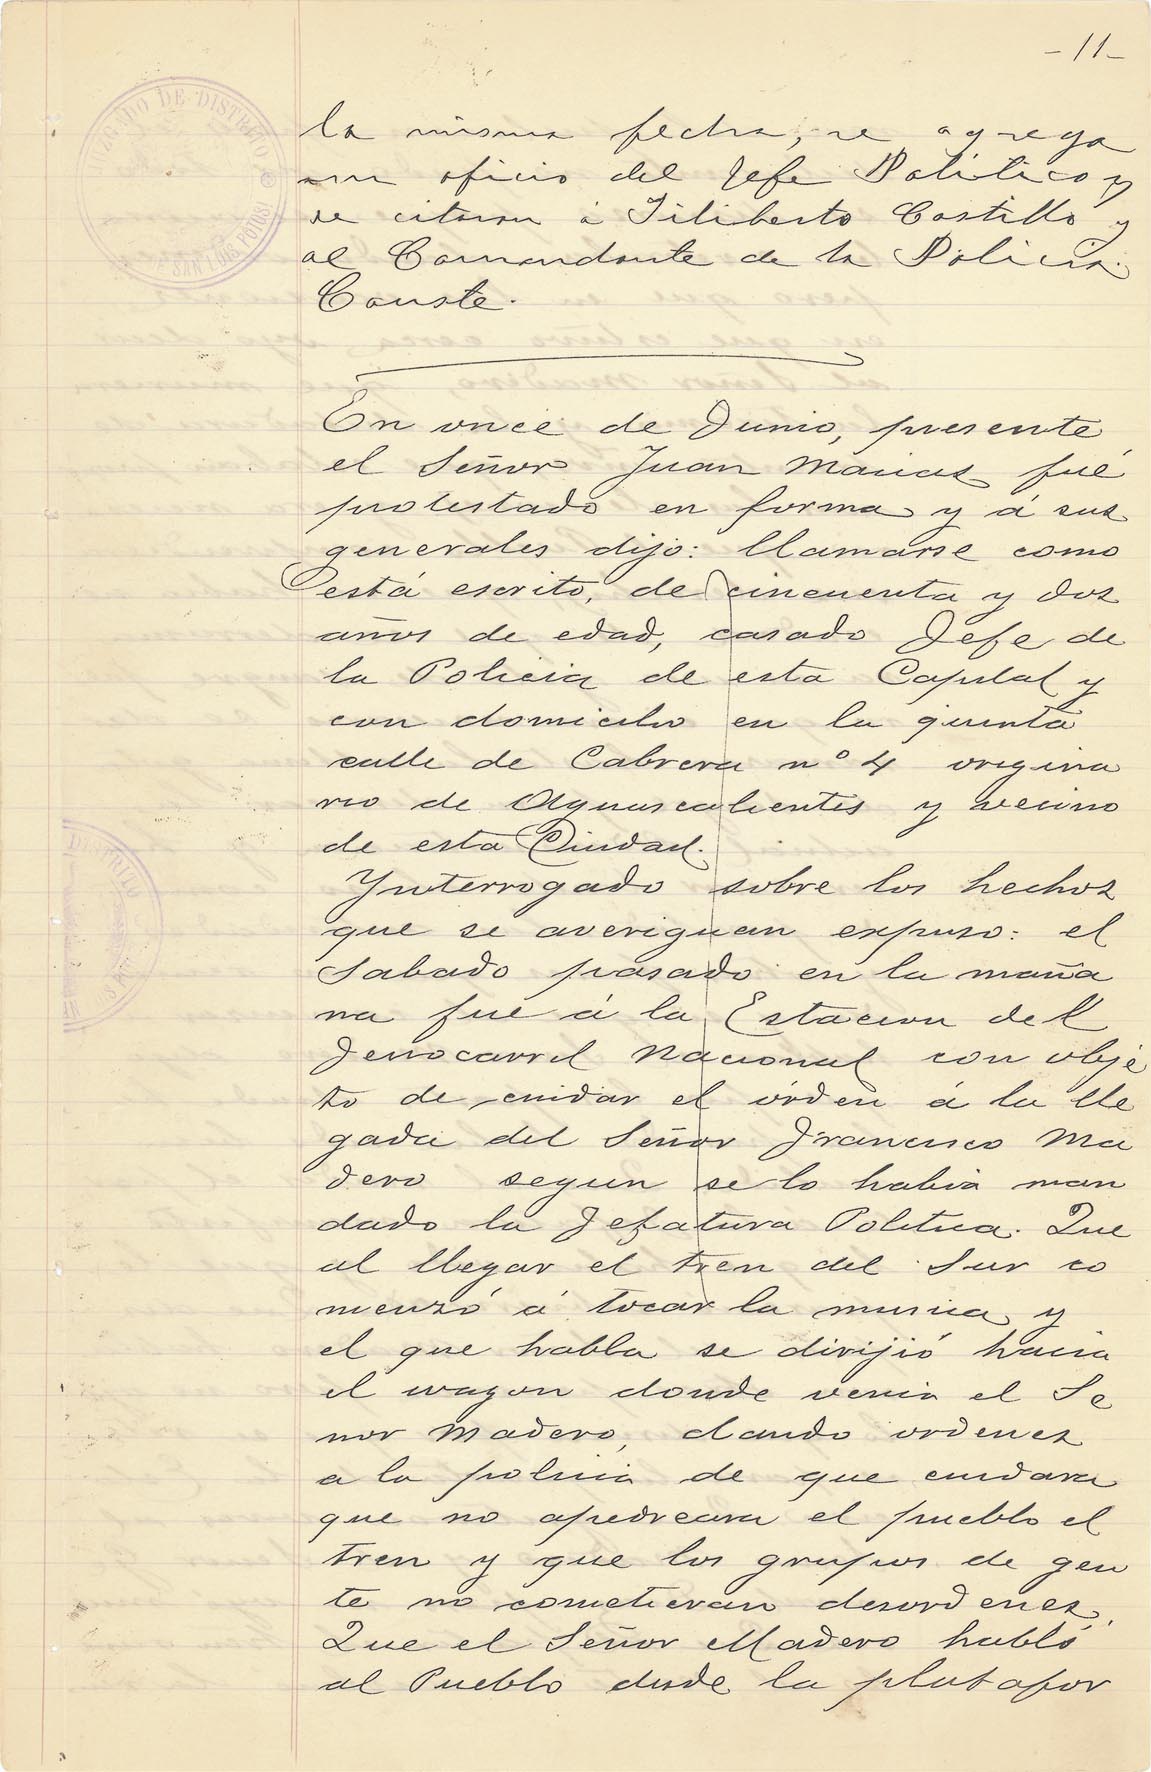 -11-
JUZGADO DE DISTRITO
DE SAN LUIS POTOSI
la misma fecha, se agrega
un oficio del Jefe Politico y
se citaron á Filiberto Castillo y
al Comandante de la Policia.
Conste.
En once de Junio, presente
el Señor Juan Macias fué
protestado en forma y á sus
generales dijo: llamarse como
está escrito, de cincuenta y dos
años de edad, casado Jefe de
la Policia de esta Capital y
con domicilio en la quinta
calle de Cabrera nº 4 origina
rio de Aguascalientes y vecino
de esta Ciudad.
Ynterrogado sobre los hechos
que se averiguan expuso: el
Sabado pasado en la maña
na fue á la Estacion del
Ferrocarril Nacional con obje
to de cuidar el órden á la lle
gada del Señor Francisco Ma
dero segun se lo habia man
dado la Jefatura Politica. Que
al llegar el tren del Sur co
menzó á tocar la musica y
el que habla se dirijió hacia
el wagon donde venia el Se
nor Madero, dando ordenes
a la policia de que cuidara
que no apedreara el pueblo el
tren y que los grupos de gen
te no cometieran desordenes.
Que el Señor Madero habló
al Pueblo desde la platafor
DISTRITO